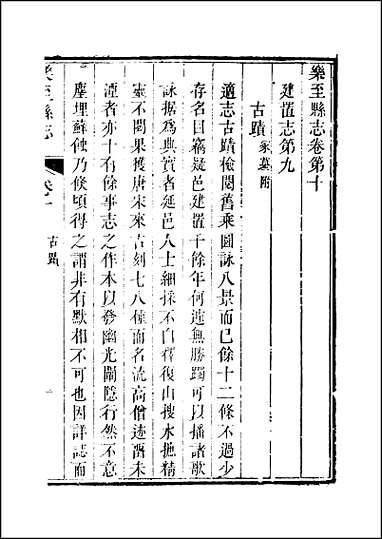 樂至縣志卷第十
建置志第九
古蹟 冢墓附
適志古蹟檢閱舊乘圖詠八景而已餘十二條不過少
存名目竊疑邑建置千餘年何遽無勝躅可以播諸歌
詠据為典實者延邑人士細採不自釋復山搜水抱精
靈不閟果獲唐宋來古刻七八種而名流高僧遠裔未
湮者亦十有餘事志之作本以發幽光闡隱行然不意
塵埋蘚蝕乃倏頃得之謂非有默相不可也因詳誌而
樂至縣志
古蹟